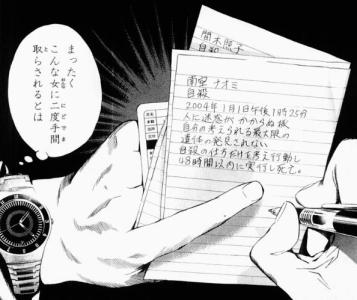 まったく
こんな女に二度手間
取らされるとは
間木照子
自殺
南空 ナオミ
自殺
2004年1月1日午後1時25分
人に迷惑が かからぬ様
自分の考えられる最大限の
遺体の発見されない
自殺の仕方だけを考え行動し
48時間以内に実行し死亡。